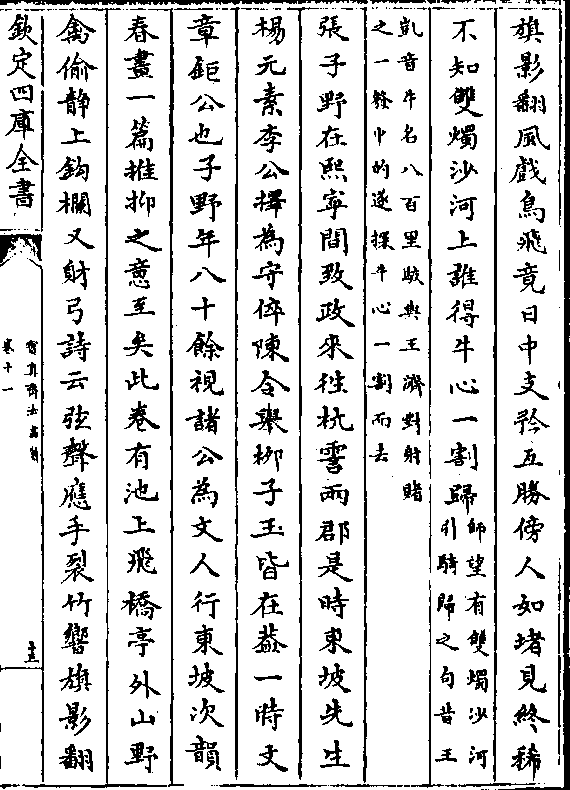 旗影翻風戲鳥飛竟日中支矜五勝傍人如堵見終稀
不知雙燭沙河上誰得牛心一割歸
師望有雙燭沙河
引騎歸之句昔王
凱音牛名八百里駮與王濟對射賭
之一發中的遂探牛心一割而去
張子野在熙寧間致政來徃杭霅兩郡是時東坡先生
楊元素李公擇為守倅陳令舉栁子玉皆在葢一時文
章鉅公也子野年八十餘視諸公為丈人行東坡次韻
春晝一篇推抑之意至矣此卷有池上飛橋亭外山野
禽偷靜上鈎欄又財弓詩云弦聲應手裂竹響旗影翻
欽定四庫全書
寶真齋法書贊
卷十一